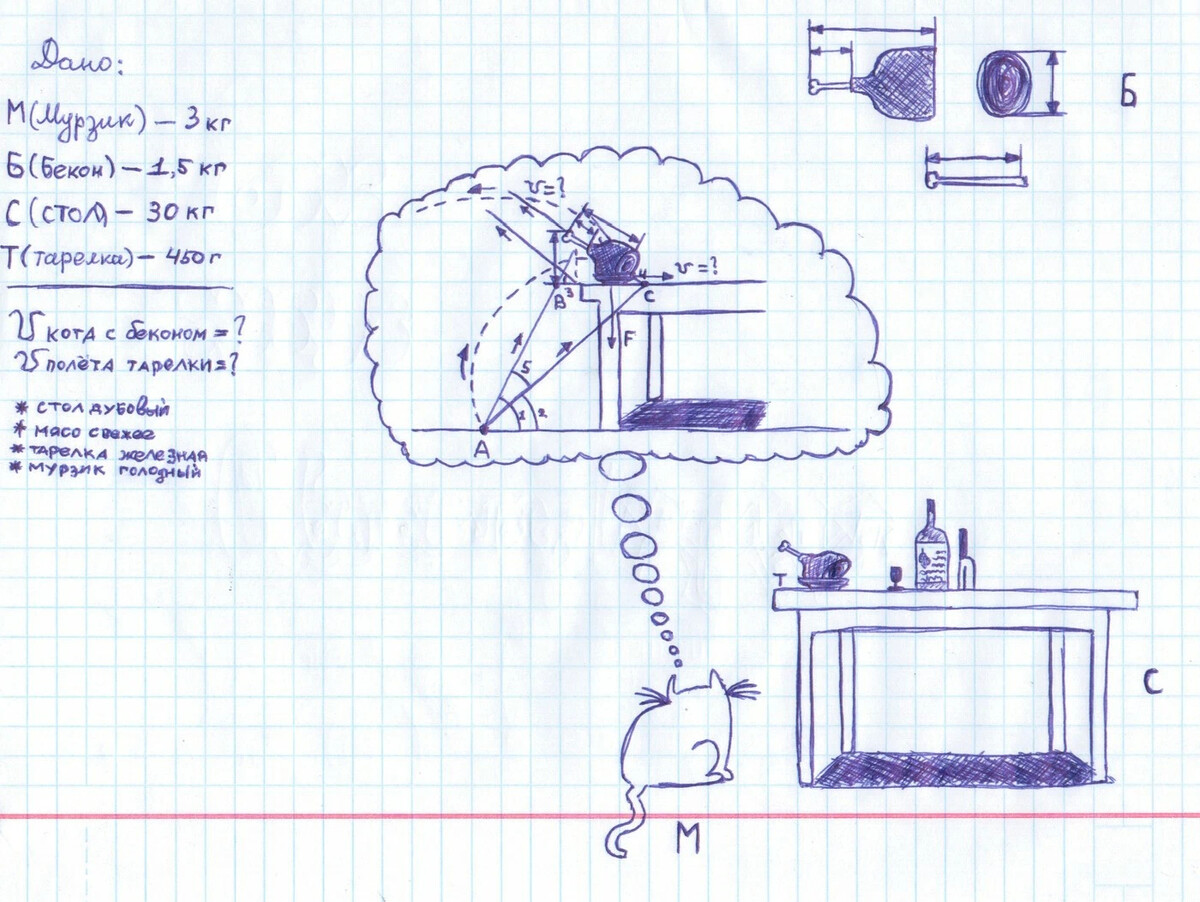 Дано:
М(Мурзик) — 3 кг
Б(Бекон) — 1,5 кг
С(стол) — 30 кг
Т(тарелка) — 450 г
v кота с беконом = ?
v полёта тарелки = ?
* стол дубовый
* мясо свежее
* тарелка железная
* мурзик голодный
Б
v=?
v=?
B 3 4 C
F
5
1 2
A
Т
С
М